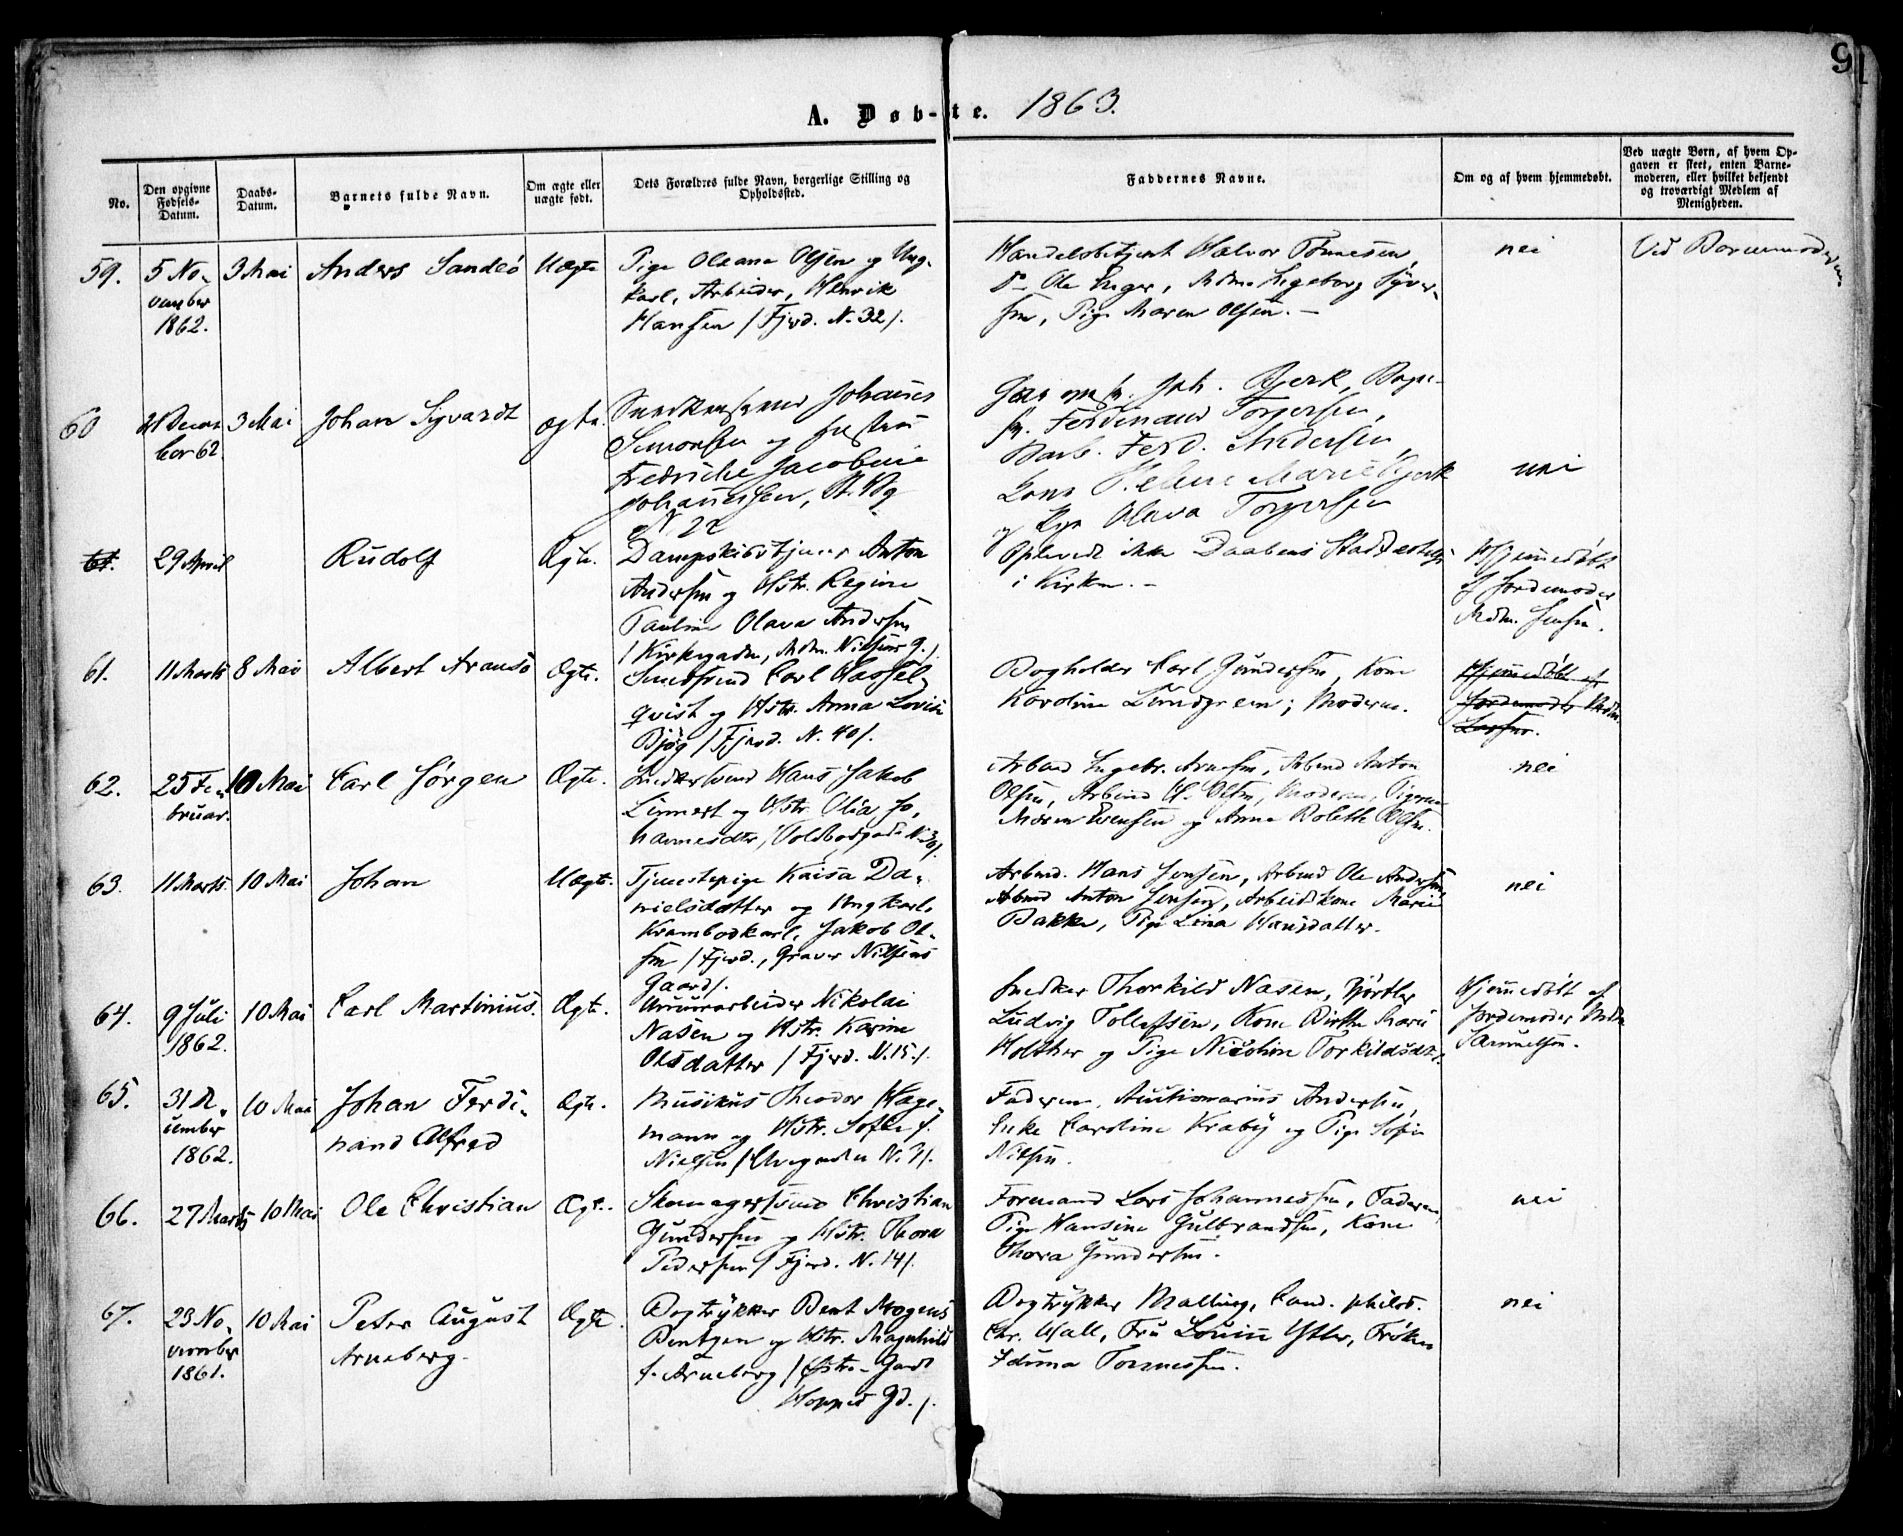 9
A. Døb-te. 1863.
No.
Den opgivne
Fødsels-
Datum.
Daabs-
Datum.
Barnets fulde Navn.
Om ægte eller
uægte født.
Dets Forældres fulde Navn, borgerlige Stilling og
Opholdssted.
Faddernes Navne.
Om og af hvem hjemmedøbt.
Ved uægte Børn, af hvem Op-
gaven er skeet, enten Barne-
moderen, eller hvilket bekjendt
og troværdigt Medlem af
Menigheden.
59.
5 No-
vember
1862.
3 Mai
Anders Sandeo
Uægte
Pige Oleana Olsen og Ung-
karl, Arbeider, Henrik
Hansen /Fjerd. N. 32/.
Handelsbetjent Halvor Tønnesen,
Do Ole Unger, Mdm. Ingeborg Syver-
sen, Pige Maren Olsen.-
nei
Ved Barnemoderen
60
21 Decem
ber 62
3 Mai
Johan Sigvardt
ægte.
Snedkersvend Johannes
Simonsen og Hustru
Fredrikke Jacobine
Johannessen, St.
N 22
Joh. Bjerk, Bage-
sv. Ferdinand Torgersen,
Ferd. Andersen,
Kone Helene Marie Bjerk
og Pge Olava Torgersen
nei
61.
29 April
Rudolf
Ægte.
Dampskibstjener Anton
Andersen og Hstr. Regine
Pauline Olava Andersen
/Kirkegaden, Mdm. Nilsens G./.
Oplevede ikke Daabens Stadfæstelse
i Kirken.-
Hjemmedøbt
af Jordemoder
Mdm. Jensen.
61.
11 Marts
8 Mai
Albert Aranso
Ægte.
Smedsvend Carl Hassel-
qvist og Hstr. Anna Lovise
Bjøg /Fjerd. N. 40/.
Bogholder Carl Gundersen, Kone
Karoline Lundgreen; Moderen.
Hjemmedøbt af
Jordemoder Mdm
Larsen.
62.
25 Fe-
bruar.
10 Mai
Carl Jørgen
Ægte.
Snedkersvend Hans Jakob
Linnert og Hstr. Olia Jo-
hannesdtr /Voldborggade N. 30/.
Arbmd Ingebr. Arnesen, Arbmd Anton
Olsen, Arbmd H. Olsen, Moderen, Pigerne
Maren Evensen og Anne Bolette Olsen.
nei
63.
11 Marts.
10 Mai
Johan
Uægte.
Tjenestepige Kaisa Da-
nielsdatter og Ungkarl,
Krambodkarl, Jakob Ol-
sen /Fjerd., Graver Nilsens
Gaard/.
Arbmd. Hans Jensen, Arbmd Ole Andersen
Arbmd Anton Jensen, Arbeidskone Marie
Bakke, Pige Lina Hansdatter.
nei
64.
9 Juli
1862.
10 Mai
Carl Martinius.
Ægte.
Murerarbeider Nikolai
Nasen og Hstr. Karine
Olsdatter /Fjerd. N. 15./.
Snedker Thorkild Nasen, Gjørtler
Ludvig Tollefsen, Kone Birthe Marie
Holther og Pige Nicoline Torkildsdtr.
Hjemmedøbt af
Jordemoder Mdm
Samuelsen.
65.
31 De-
cember
1862.
10 Mai
Johan Ferdi-
nand Alfred
Ægte.
Musikus Theodor Hage-
mann og Hstr. Sofie f.
Nielsen / N. 7/.
Faderen, Auctionarius Andersen,
Enke Caroline Kraby og Pige Sofie
Nilsen.
66.
27 Marts
10 Mai
Ole Christian
Ægte.
Skomagersvend Christian
Gundersen og Hstr. Thora
Pedersen /Fjerd. N. 14/.
Formand Lars Johannessen, Faderen,
Pige Hansine Gulbrandsen, Kone
Thora Gundersen.
nei
67.
23 No-
vember
1861.
10 Mai
Peter August
Arneberg.
Ægte.
Bogtrykker Bent Mogens
Bentzen og Hstr. Magnhild
f. Arneberg /Østre-Gade
Hoppes Gd./.
Bogtrykker Malling, Cand. philos.
Chr. Hall, Fru Lovise Ytter, Frøken
Iduna Tønnessen.
nei